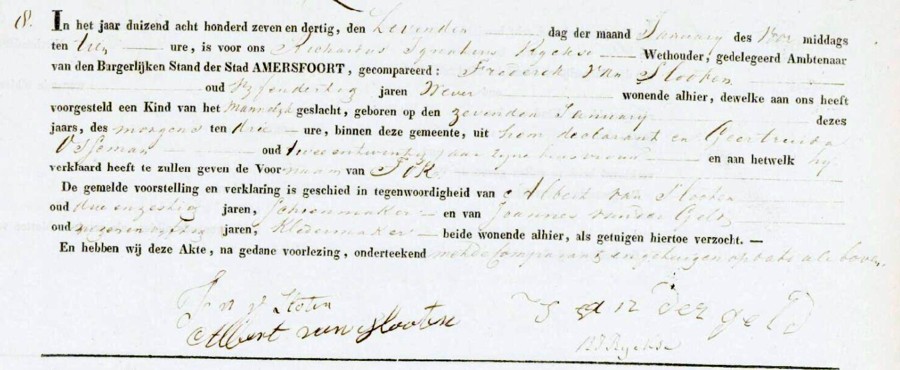 8. In het jaar duizend acht honderd zeven en dertig, den Zevenden dag der maand January des Voor middags
ten tien ure, is voor ons Richardus Ignatius Ryckse Wethouder, gedelegeerd Ambtenaar
van den Burgerlijken Stand der Stad AMERSFOORT, gecompareerd: Frederik van Slooten
oud vyfendertig jaren Wever wonende alhier, dewelke aan ons heeft
voorgesteld een Kind van het Mannelyk geslacht, geboren op den zevenden January dezes
jaars, des morgens ten drie ure, binnen deze gemeente, uit hem declarant en Geertruida
oud twee en twintig jaar zyne huisvrouw en aan hetwelk hy
verklaard heeft te zullen geven de Voornaam van
De gemelde voorstelling en verklaring is geschied in tegenwoordigheid van Albert van Slooten
oud drie en zestig jaren, Schoenmaker en van Joannes van der Geld
oud jaren, Kledermaker beide wonende alhier, als getuigen hiertoe verzocht. —
En hebben wij deze Akte, na gedane voorlezing, onderteekend met de Comparant en getuigen op dato als boven.
F v Sloten
Albert van Slooten
van der geld
RI Ryckse